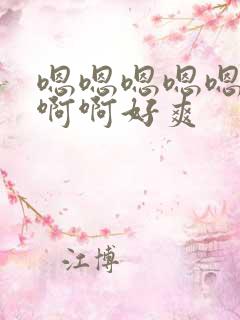 嗯嗯嗯嗯嗯
啊啊好爽
江博